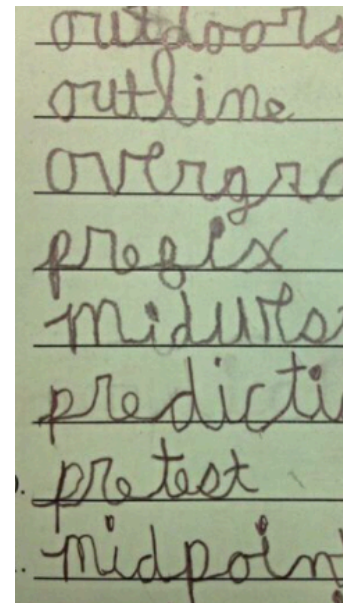 outdoors
outline
overgro
prefix
midwes
predicti
pretest
midpoin